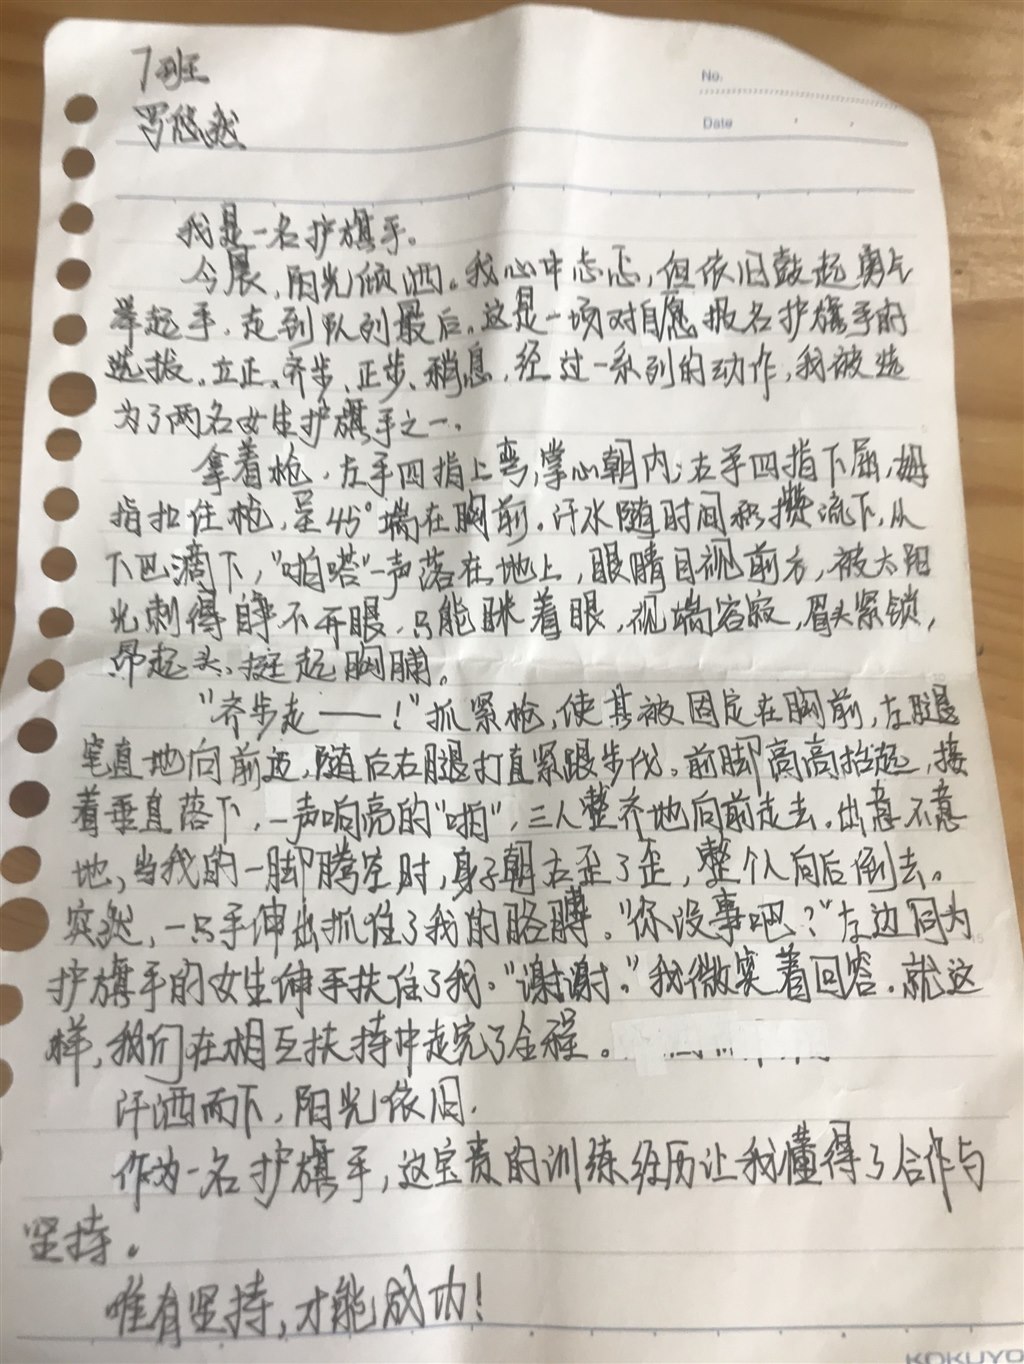 7班
罗悠然
No.
Date
我是一名护旗手。
今晨，阳光倾洒。我心中忐忑，但依旧鼓起勇气
举起手，走到队列最后。这是一场对自愿报名护旗手的
选拔。立正、齐步、正步、稍息，经过一系列的动作，我被选
为了两名女生护旗手之一。
拿着枪，左手四指上弯，掌心朝内；右手四指下屈，拇
指扣住枪，呈45°端在胸前。汗水随时间积攒流下，从
下巴滴下，“啪嗒”一声落在地上，眼睛目视前方，被太阳
光刺得睁不开眼，只能眯着眼，视端容寂，眉头紧锁，
昂起头、挺起胸脯。
“齐步走——！”抓紧枪，使其被固定在胸前，左腿
笔直地向前迈，随后右腿打直紧跟步伐。前脚高高抬起，接
着垂直落下，一声响亮的“啪”，三人整齐地向前走去。出意不意
地，当我的一脚腾空时，身子朝右歪了歪，整个人向后倒去。
突然，一只手伸出抓住了我的胳膊。“你没事吧？”左边同为
护旗手的女生伸手扶住了我。“谢谢。”我微笑着回答。就这
样，我们在相互扶持中走完了全程。
汗洒而下，阳光依旧。
作为一名护旗手，这宝贵的训练经历让我懂得了合作与
坚持。
唯有坚持，才能成功！
KOKUYO